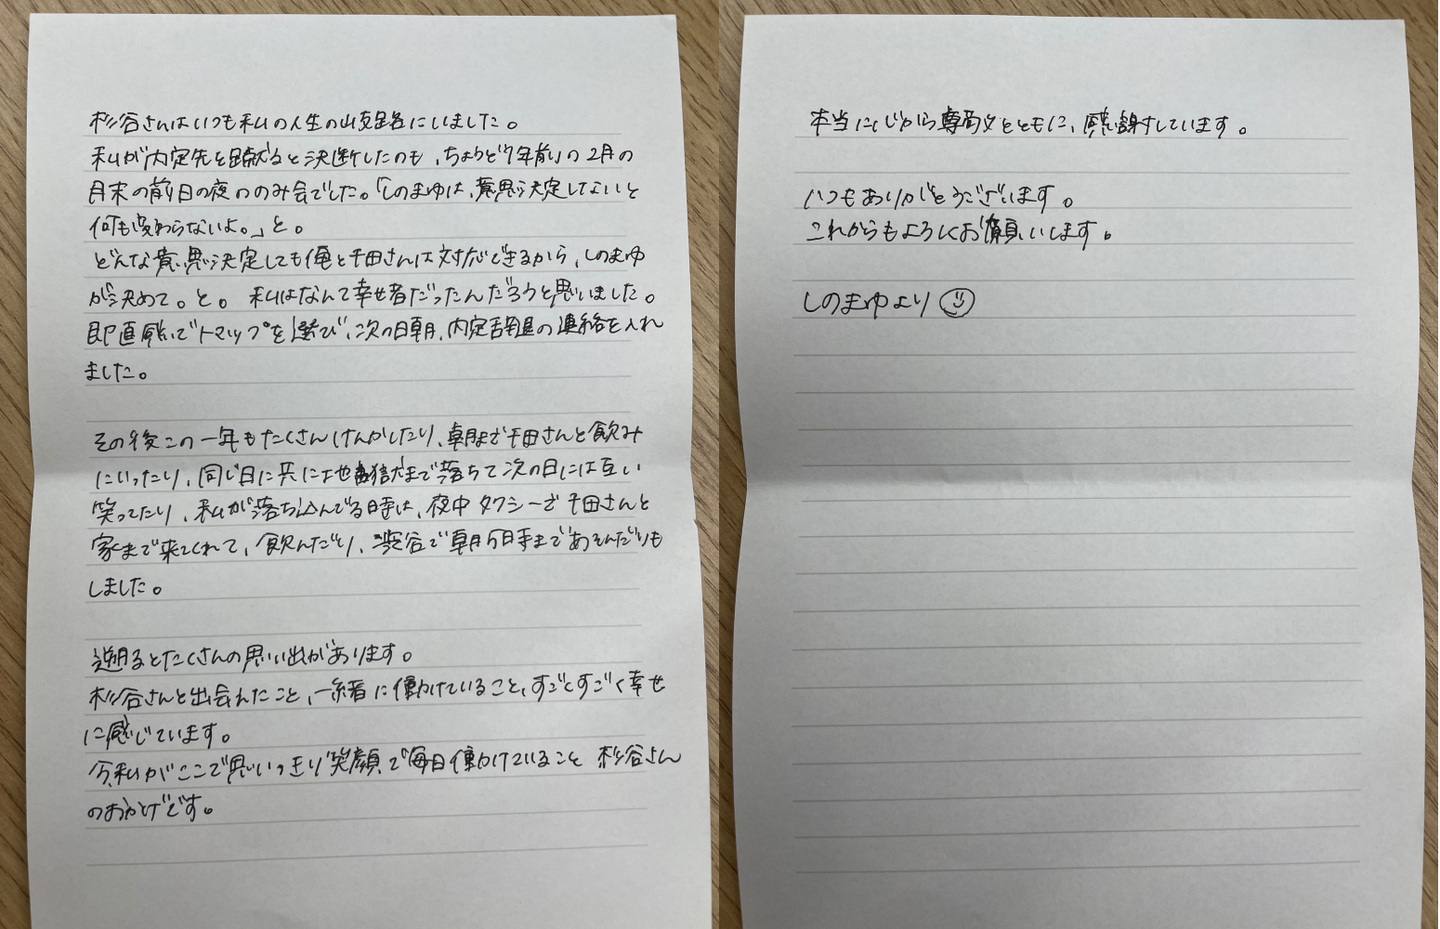 杉谷さんはいつも私の人生の岐路にいました。
私が内定先を蹴ると決断したのも、ちょうど1年前の2月の
月末の前日の夜ののみ会でした。「しのまゆは、意思決定してないと
何も変わらないよ。」と。
どんな意思決定しても俺と千田さんは対応できるから、しのまゆ
が決めて。と。 私はなんて幸せ者だったんだろうと思いました。
即直感でトマップを選び、次の日朝、内定辞退の連絡を入れ
ました。
その後この一年もたくさんけんかしたり、朝まで千田さんと飲み
にいったり、同じ日に共に地獄まで落ちて次の日には互い
笑ってたり、私が落ち込んでる時は、夜中タクシーで千田さんと
家まで来てくれて、飲んだり、渋谷で朝5時まであそんだりも
しました。
遡るとたくさんの思い出があります。
杉谷さんと出会えたこと、一緒に働けていること、すごくすごく幸せ
に感じています。
今、私がここで思いっきり笑顔で毎日働けていること 杉谷さん
のおかげです。
本当に心から尊敬とともに、感謝しています。
いつもありがとうございます。
これからもよろしくお願いします。
しのまゆより